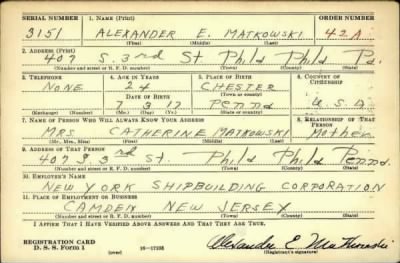 SERIAL NUMBER 1. NAME (Print) ORDER NUMBER
3151 ALEXANDER E. MATKOWSKI 42A
(First) (Middle) (Last)
2. ADDRESS (Print)
407 S. 3rd St Phila Phila Pa.
(Number and street or R. F. D. number) (Town) (County) (State)
3. TELEPHONE 4. AGE IN YEARS 5. PLACE OF BIRTH 6. COUNTRY OF CITIZENSHIP
NONE 24 CHESTER
DATE OF BIRTH (Town or county)
7 3 17 Penna U.S.A.
(Exchange) (Number) (Mo.) (Day) (Yr.) (State or country)
7. NAME OF PERSON WHO WILL ALWAYS KNOW YOUR ADDRESS 8. RELATIONSHIP OF THAT PERSON
MRS. CATHERINE MATKOWSKI Mother
(Mr., Mrs., Miss) (First) (Middle) (Last)
9. ADDRESS OF THAT PERSON
407 S 3rd St. Phila Phila Penna.
(Number and street or R. F. D. number) (Town) (County) (State)
10. EMPLOYER'S NAME
NEW YORK SHIPBUILDING CORPORATION
11. PLACE OF EMPLOYMENT OR BUSINESS
CAMDEN NEW JERSEY
(Number and street or R. F. D. number) (Town) (County) (State)
I AFFIRM THAT I HAVE VERIFIED ABOVE ANSWERS AND THAT THEY ARE TRUE.
REGISTRATION CARD
D. S. S. Form 1 16-17105 (over) Alexander E Matkowski
(Registrant's signature)